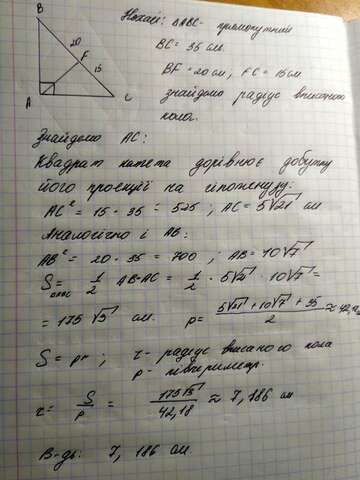 B
20
F
15
A
C
Нехай: ΔABC - прямокутний
BC = 35 см
BF = 20 см, FC = 15 см
знайдемо радіус вписаного
кола.
Знайдемо AC:
Квадрат катета дорівнює добутку
його проекції на гіпотенузу:
AC² = 15 · 35 = 525 ; AC = 5√21 см
Аналогічно і AB:
AB² = 20 · 35 = 700 ; AB = 10√7
S = 1/2 AB·AC = 1/2 · 5√21 · 10√7 =
= 175√3 см. p = (5√21 + 10√7 + 35)/2 ≈ 42,18
S = pr ; r - радіус вписаного кола
p - півпериметр.
r = S/p = 175√3/42,18 ≈ 7,186 см
В-дь: 7,186 см.